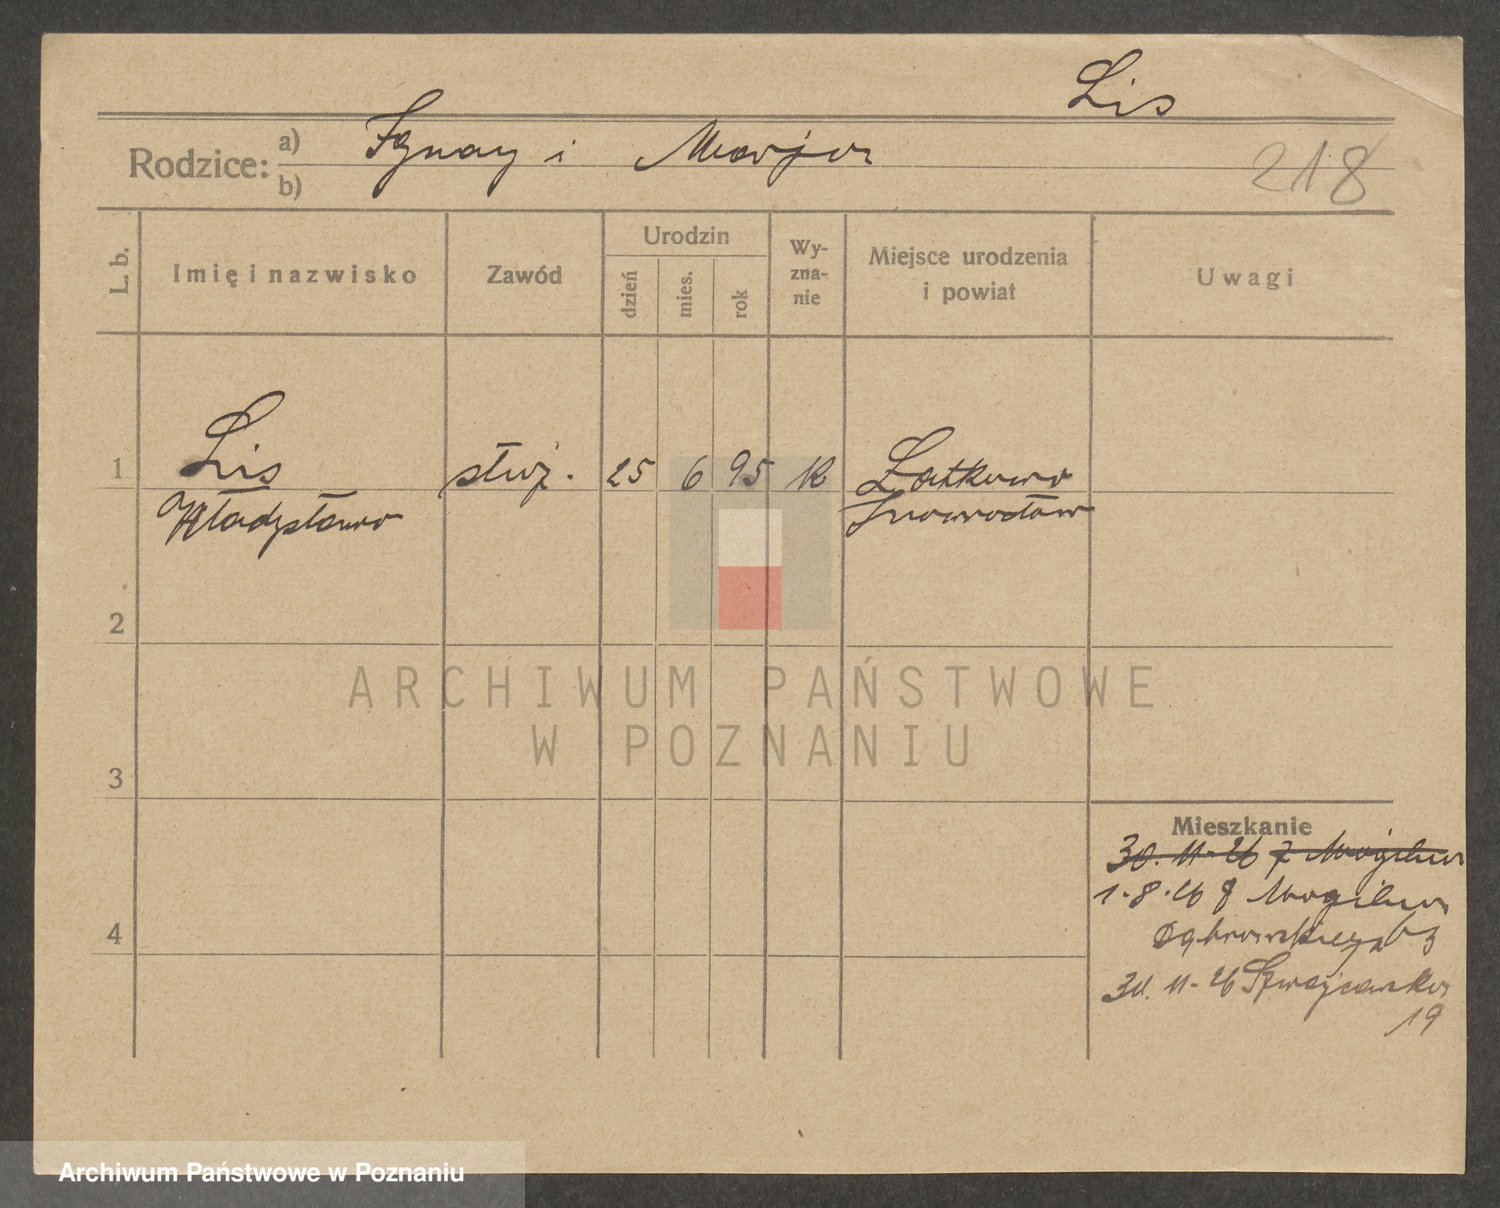 Lis
Rodzice: a) Ignacy i Marja
b)
218
L. b.
Imię i nazwisko
Zawód
Urodzin
dzień
mies.
rok
Wy-
zna-
nie
Miejsce urodzenia
i powiat
Uwagi
1
Lis
Władysława
służ.
25
6
95
K
Łatkowo
Inowrocław
2
ARCHIWUM PAŃSTWOWE
W POZNANIU
3
4
Mieszkanie
30. 11. 26 z Mogilna
1. 8. 26 Mogilna
Dąbrowskiego
30. 11. 26 Szwajcarska
19
Archiwum Państwowe w Poznaniu